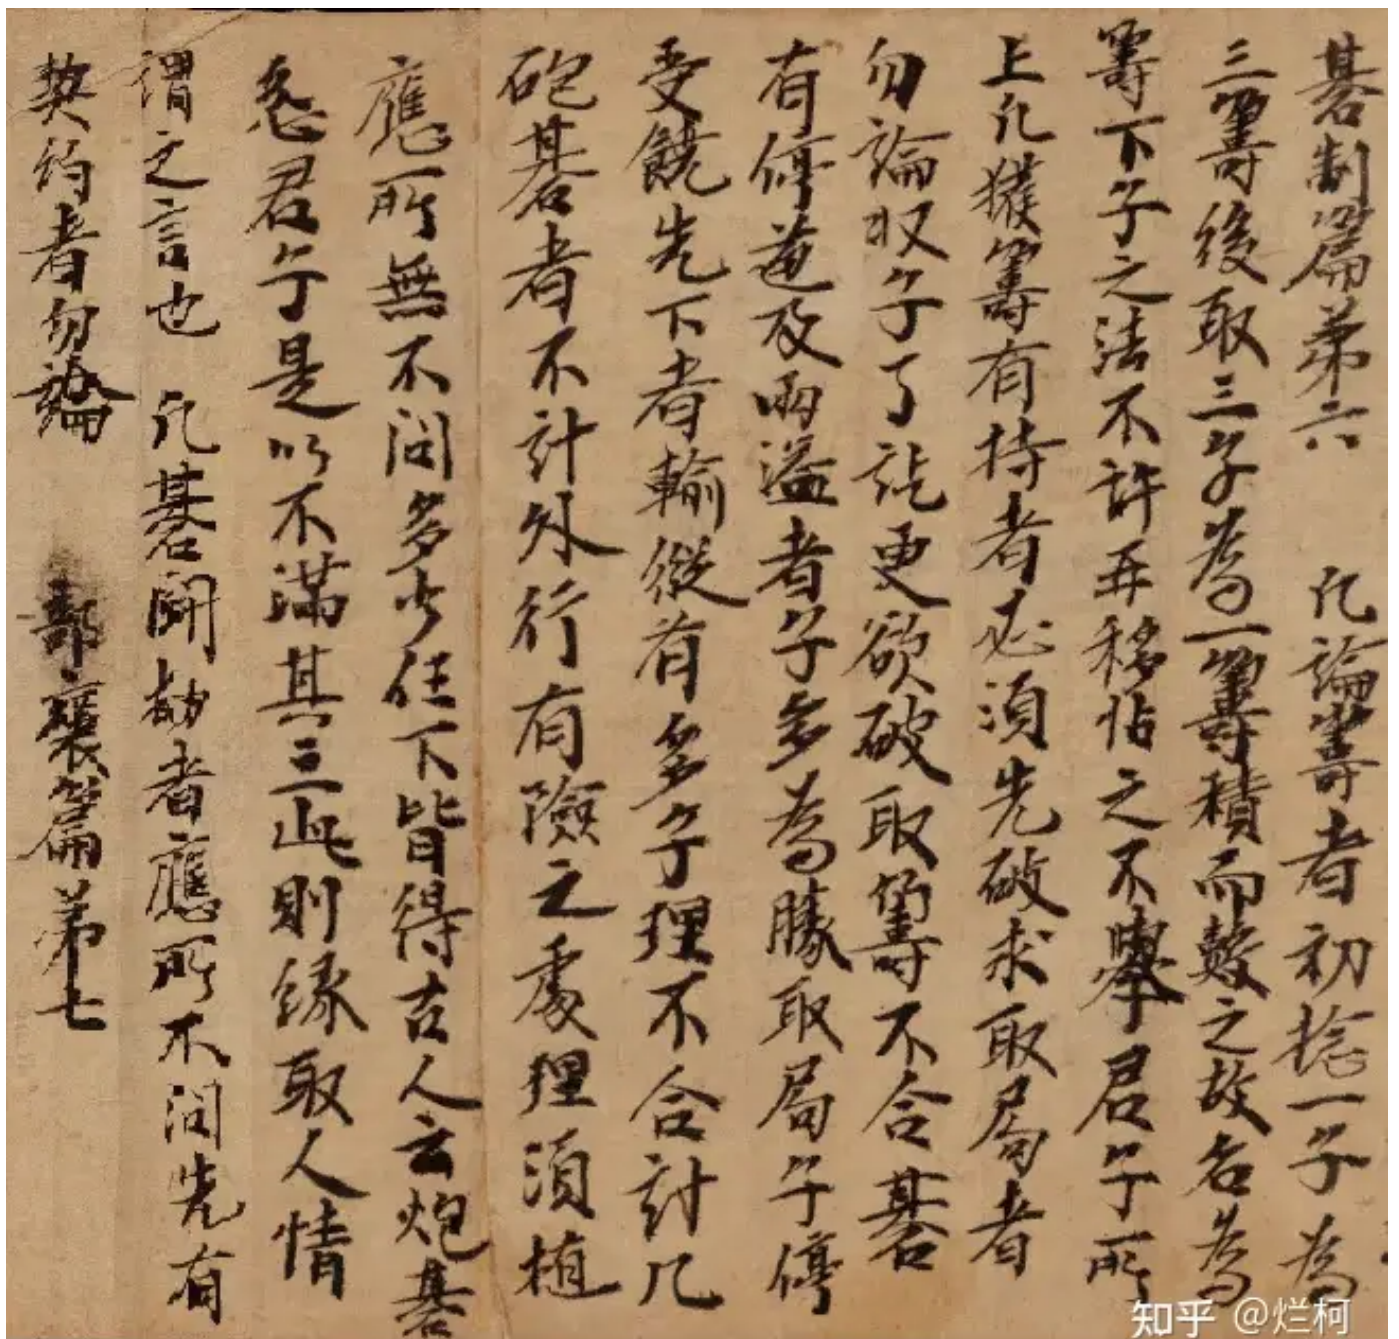 碁制篇第六 凡論籌者初捻一子為
三籌後取三子為一籌積而數之故名為
籌下子之法不許再移怗之不舉君子所
上凡獲籌有持者必須先破求取局者
勿論收子了訖更欲破取籌不合碁
有停道及兩溢者子多為勝取局子停
受饒先下者輸縱有多子理不合計凡
砲碁者不計外行有險之處理須植
應所無不問多少任下皆得古人云炮碁
悉君子是以不滿其三此則緣取人情
謂之言也 凡碁鬪劫者應所不問先有
契約者勿論 部襄篇第七
知乎 @烂柯